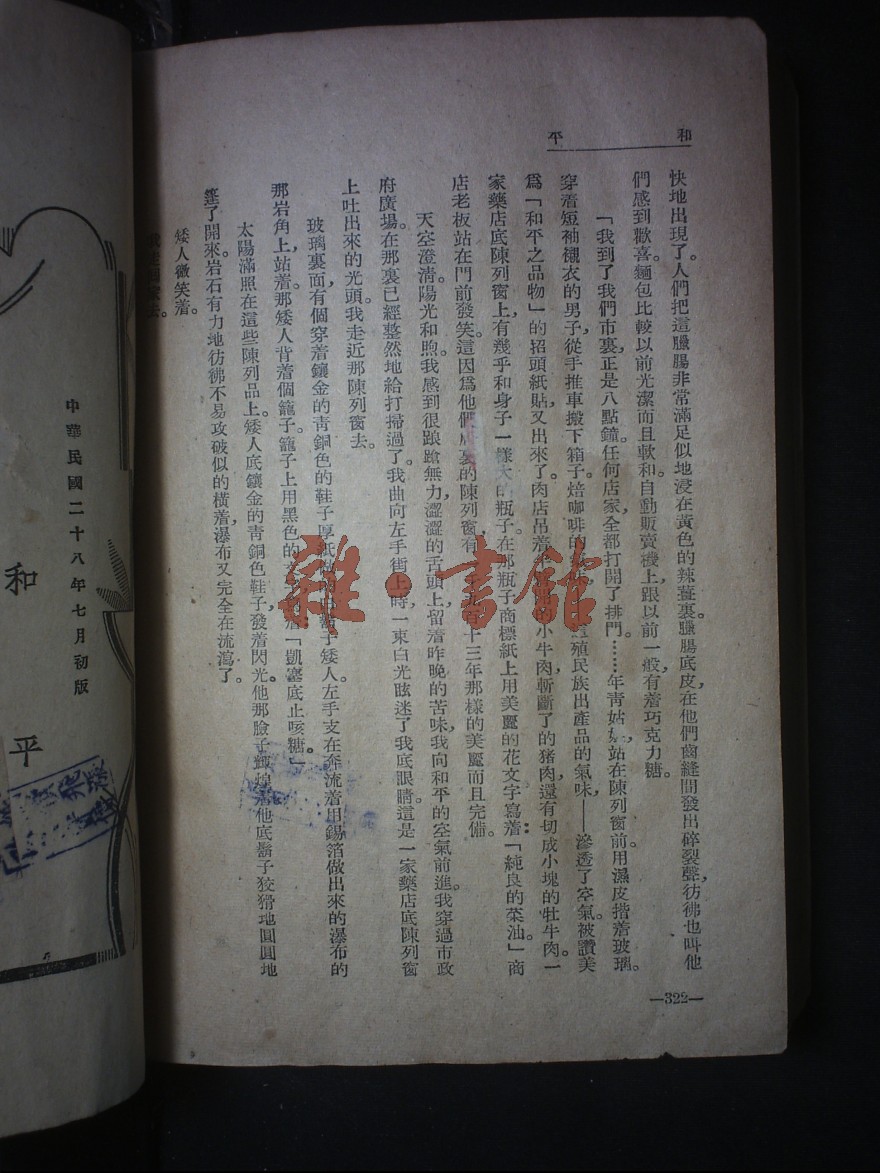 和平
快地出現了。人們把這臘腸非常滿足似地浸在黃色的辣薑裏，臘腸底皮在他們齒縫間發出碎裂聲，彷彿也叫他
們感到歡喜。麵包比較以前光潔而且軟和。自動販賣機上，跟以前一般有着巧克力糖。
「我到了我們市裏，正是八點鐘。任何店家，全都打開了排門。……年青姑娘站在陳列窗前，用濕皮揩着玻璃。
穿着短袖襯衣的男子，從手推車搬下箱子。焙咖啡的 殖民族出產品的氣味——滲透了空氣。被讚美
爲「和平之品物」的招頭紙貼又出來了。肉店吊着 的小牛肉，斬斷了的猪肉，還有切成小塊的牡牛肉。一
家藥店底陳列窗上，有幾乎和身子一樣大的瓶子。在那瓶子商標紙上用美麗的花文字寫着：「純良的菜油」商
店老板站在門前發笑。這因爲他們 的陳列窗有 十三年那樣的美麗而且完備。
天空澄清，陽光和煦。我感到很踉蹌無力，澀澀的舌頭上留着昨晚的苦味，我向和平的空氣前進。我穿過市政
府廣場。在那裏已經整然地給打掃過了。我曲向左手街上時，一束白光眩迷了我底眼睛。這是一家藥店底陳列窗
上吐出來的光頭。我走近那陳列窗去。
玻璃裏面有個穿着鑲金的青銅色的鞋子， 矮人，左手支在奔流着用錫箔做出來的瀑布的
那岩角上站着。那矮人背着個籠子。籠子上用黑色的 着：「凱塞底止咳糖」。
太陽滿照在這些陳列品上。矮人底鑲金的青銅色鞋子發着閃光。他那臉子 他底鬍子狡猾地圓圓地
篷了開來。岩石有力地彷彿不易攻破似的橫着，瀑布又完全在流瀉了。
矮人微笑着。
—322—
中華民國二十八年七月初版
和
平
雜·書館